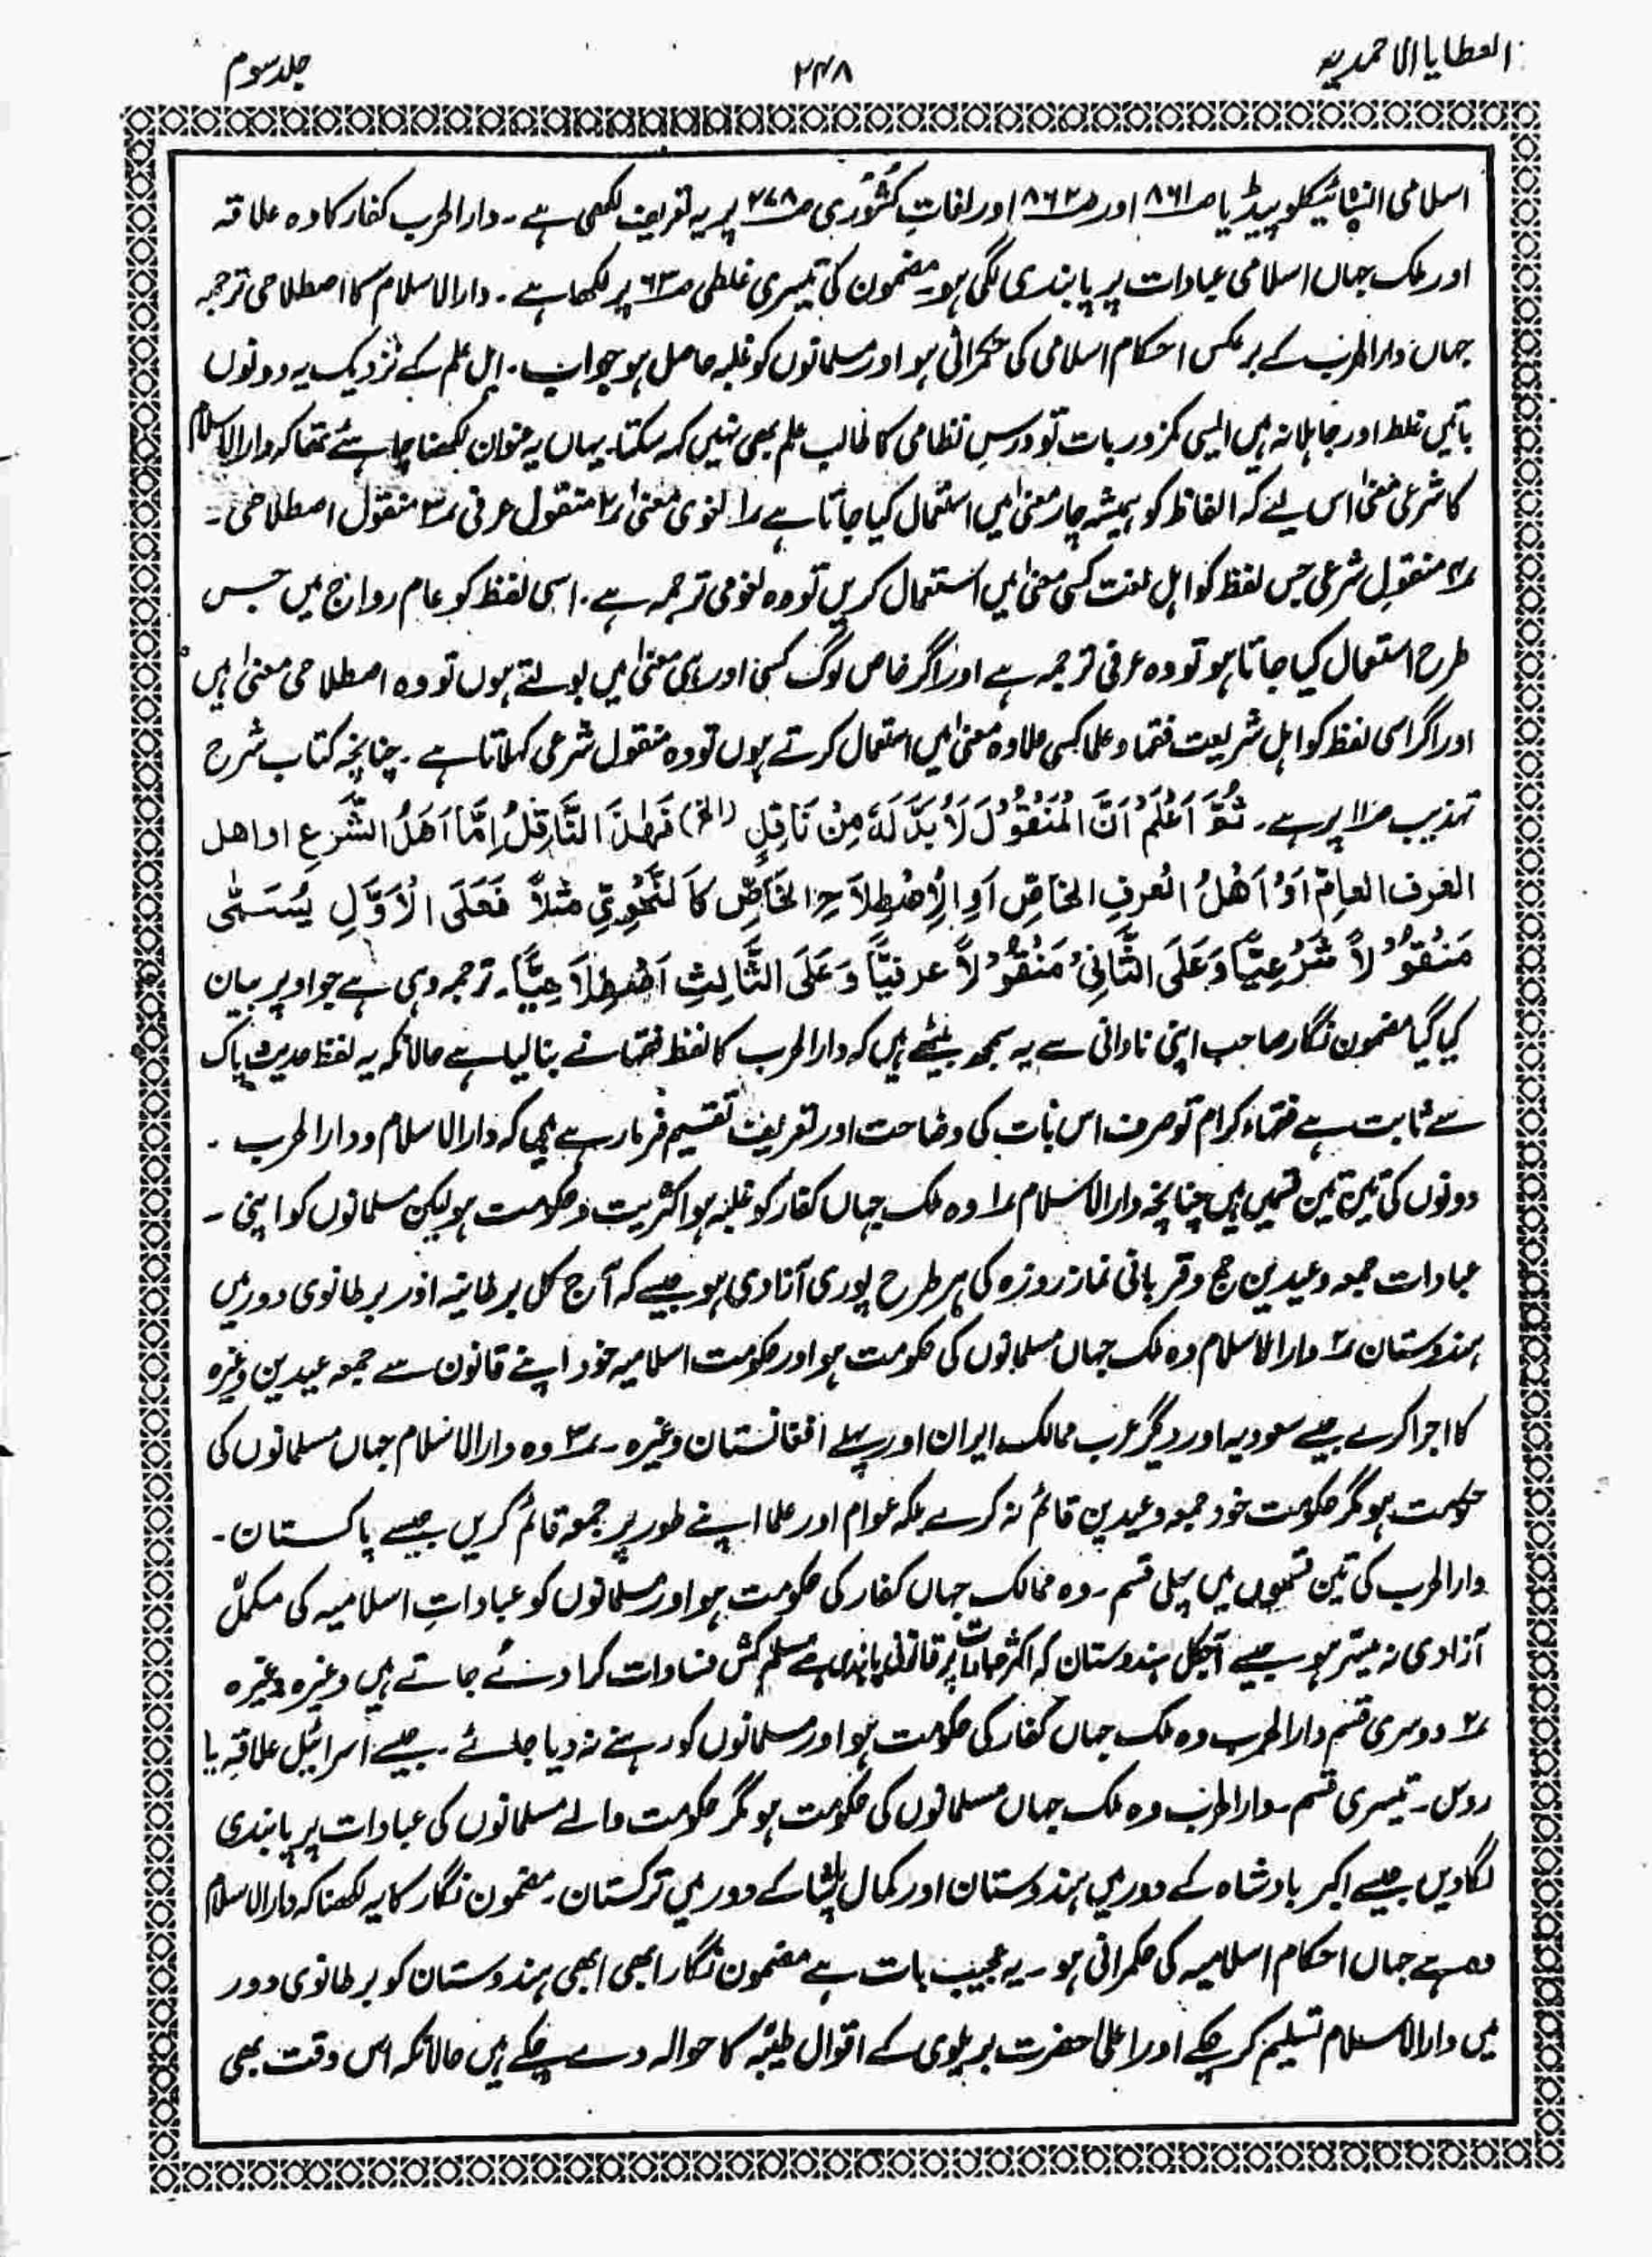 العطایا الاحمدیہ
۲۴۸
جلد سوم
اسلامی انسائیکلوپیڈیا صـ۸۶۱ اور صـ۸۶۲ اور لغاتِ کشوری صـ۲۷۸ پر یہ تعریف لکھی ہے۔ دارالحرب کفار کا وہ علاقہ
اور ملک جہاں اسلامی عبادات پر پابندی لگی ہو۔ مضمون کی تیسری غلطی صـ۶۳ پر لکھا ہے۔ دارالاسلام کا اصطلاحی ترجمہ
جہاں دارالحرب کے برعکس احکام اسلامی کی حکمرانی ہو اور مسلمانوں کو غلبہ حاصل ہو جواب۔ اہل علم کے نزدیک یہ دونوں
باتیں غلط اور جاہلانہ ہیں ایسی کمزور بات تو درسِ نظامی کا طالب علم بھی نہیں کہہ سکتا۔ یہاں یہ عنوان لکھنا چاہئے تھا کہ دارالاسلام
کا شرعی معنیٰ اس لیے کہ الفاظ کو ہمیشہ چار معنیٰ میں استعمال کیا جاتا ہے ۱؎ لغوی معنیٰ ۲؎ منقول عرفی ۳؎ منقول اصطلاحی۔
۴؎ منقولِ شرعی جس لفظ کو اہل لغت کسی معنیٰ میں استعمال کریں تو وہ لغوی ترجمہ ہے۔ اسی لفظ کو عام رواج میں جس
طرح استعمال کیا جاتا ہو تو وہ عرفی ترجمہ ہے اور اگر خاص لوگ کسی اور ہی معنیٰ میں بولتے ہوں تو وہ اصطلاحی معنیٰ ہیں
اور اگر اسی لفظ کو اہل شریعت فقہا و علما کسی علاوہ معنیٰ میں استعمال کرتے ہوں تو وہ منقول شرعی کہلاتا ہے۔ چنانچہ کتاب شرح
تہذیب صـ۱۱ پر ہے۔ ثُمَّ اَعْلَمْ اَنَّ الْمَنْقُوْلَ لَا بُدَّ لَہٗ مِنْ نَاقِلٍ (الخ) فَھٰذَا النَّاقِلُ اِمَّا اَھْلُ الشَّرعِ او اھل
العرف العامِّ اَوْ اَھْلُ الْعرفِ الخاصِّ اَوِ الْاِصْطِلَاحِ الخَاصِّ کَالنَّحْوِیِّ مَثَلًا فَعَلَی الْاَوَّلِ یُسَمّٰی
مَنْقُوْلًا شَرْعِیًّا وَعَلَی الثَّانِیْ مَنْقُوْلًا عرفیًّا وَعَلَی الثَّالِثِ اصْطِلَاحِیًّا۔ ترجمہ وہی ہے جو اوپر بیان
کیا گیا مضمون نگار صاحب اپنی نادانی سے یہ سمجھ بیٹھے ہیں کہ دارالحرب کا لفظ فقہا نے بنا لیا ہے حالانکہ یہ لفظ حدیث پاک
سے ثابت ہے فقہاء کرام تو صرف اس بات کی وضاحت اور تعریف تقسیم فرما رہے ہیں کہ دارالاسلام و دارالحرب۔
دونوں کی تین تین قسمیں ہیں چنانچہ دارالاسلام ۱؎ وہ ملک جہاں کفار کو غلبہ ہو اکثریت و حکومت ہو لیکن مسلمانوں کو اپنی۔
عبادات جمعہ و عیدین حج و قربانی نماز روزہ کی ہر طرح پوری آزادی ہو جیسے کہ آج کل برطانیہ اور برطانوی دور میں
ہندوستان ۲؎ دارالاسلام وہ ملک جہاں مسلمانوں کی حکومت ہو اور حکومت اسلامیہ خود اپنے قانون سے جمعہ عیدین وغیرہ
کا اجرا کرے جیسے سعودیہ اور دیگر عرب ممالک ایران اور پہلے افغانستان وغیرہ۔ ۳؎ وہ دارالاسلام جہاں مسلمانوں کی
حکومت ہو مگر حکومت خود جمعہ و عیدین قائم نہ کرے بلکہ عوام اور علما اپنے طور پر جمعہ قائم کریں جیسے پاکستان۔
دارالحرب کی تین قسموں میں پہلی قسم۔ وہ ممالک جہاں کفار کی حکومت ہو اور مسلمانوں کو عباداتِ اسلامیہ کی مکمل
آزادی نہ میسر ہو جیسے آجکل ہندوستان کہ اکثر عبادات پر قانونی پابندی ہے مسلم کش فسادات کرا دئے جاتے ہیں وغیرہ وغیرہ
۲؎ دوسری قسم دارالحرب وہ ملک جہاں کفار کی حکومت ہو اور مسلمانوں کو رہنے نہ دیا جائے۔ جیسے اسرائیل علاقہ یا
روس۔ تیسری قسم۔ دارالحرب وہ ملک جہاں مسلمانوں کی حکومت ہو مگر حکومت والے مسلمانوں کی عبادات پر پابندی
لگادیں جیسے اکبر بادشاہ کے دور میں ہندوستان اور کمال پاشا کے دور میں ترکستان۔ مضمون نگار کا یہ لکھنا کہ دارالاسلام
وہ ہے جہاں احکام اسلامیہ کی حکمرانی ہو۔ یہ عجیب بات ہے مضمون نگار ابھی ابھی ہندوستان کو برطانوی دور
میں دارالاسلام تسلیم کر چکے اور اعلیٰ حضرت بریلوی کے اقوال طیبہ کا حوالہ دے چکے ہیں حالانکہ اس وقت بھی